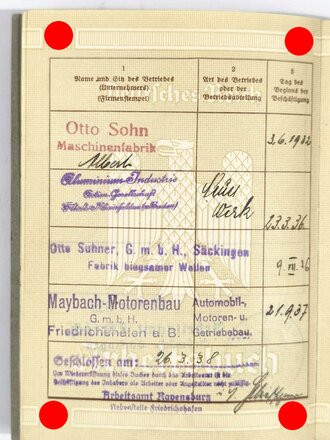 1
Name und Sitz des Betriebes
(Unternehmers)
(Firmenstempel)
2
Art des Betriebes
oder der
Betriebsabteilung
3
Tag des
Beginns der
Beschäftigung
Otto Sohn
Maschinenfabrik
3.6.1932
Aluminium-Industrie
Actien-Gesellschaft
Werk
23.3.36.
Otto Suhner, G.m.b.H., Säckingen
Fabrik biegsamer Wellen
Maybach-Motorenbau
G.m.b.H.
Friedrichshafen a.B.
Automobil-,
Motoren- u.
Getriebebau.
21.9.37
Geschlossen am: 26.3.38
Um Wiedereröffnung dieses Buches durch das Arbeitsamt ist die
Beschäftigung des Inhabers als Arbeiter oder Angestellter nicht zulässig
Arbeitsamt Ravensburg
Nebenstelle Friedrichshafen